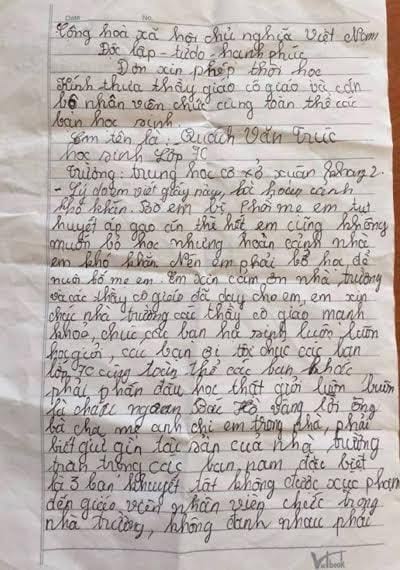 Date No.
Cộng hoà xã hội chủ nghĩa Việt Nam
Độc lập - tự do - hanh phúc
Đơn xin phép thôi học
Kính thưa thầy giáo cô giáo và cán
bộ nhân viên chức cùng toàn thể các
bạn học sinh
Em tên là: Quách Văn Trúc
học sinh lớp 7C
Trường: trung học cơ sở xuân phang 2.
- Lý do em viết giấy này, hà hoan cảnh
khó khăn. Bố em bị phổi mẹ em tụt
huyết áp gạo ăn thì hết em cũng không
muốn bỏ học nhưng hoàn cảnh nhà
em khó khăn. Nên em phải bỏ học để
nuôi bố mẹ em. Em xin cảm ơn nhà trường
và các thầy cô giáo đã dạy cho em, em xin
chúc nhà trường các thầy cô giáo mạnh
khoẻ, chúc các bạn học sinh luôn luôn
học giỏi, các bạn ơi tôi chúc các bạn
lớp 7C cùng toàn thể các bạn khác
phải phấn đấu học thật giỏi luôn luôn
là cháu ngoan Bác Hồ vâng lời ông
bà cha mẹ anh chị em trong nhà, phải
biết giữ gìn tài sản của nhà trường
trân trọng các bạn, nam đặc biệt
là 3 bạn khuyết tật không được xúc phạm
đến giáo viên nhân viên chức trong
nhà trường, không đánh nhau phải
book